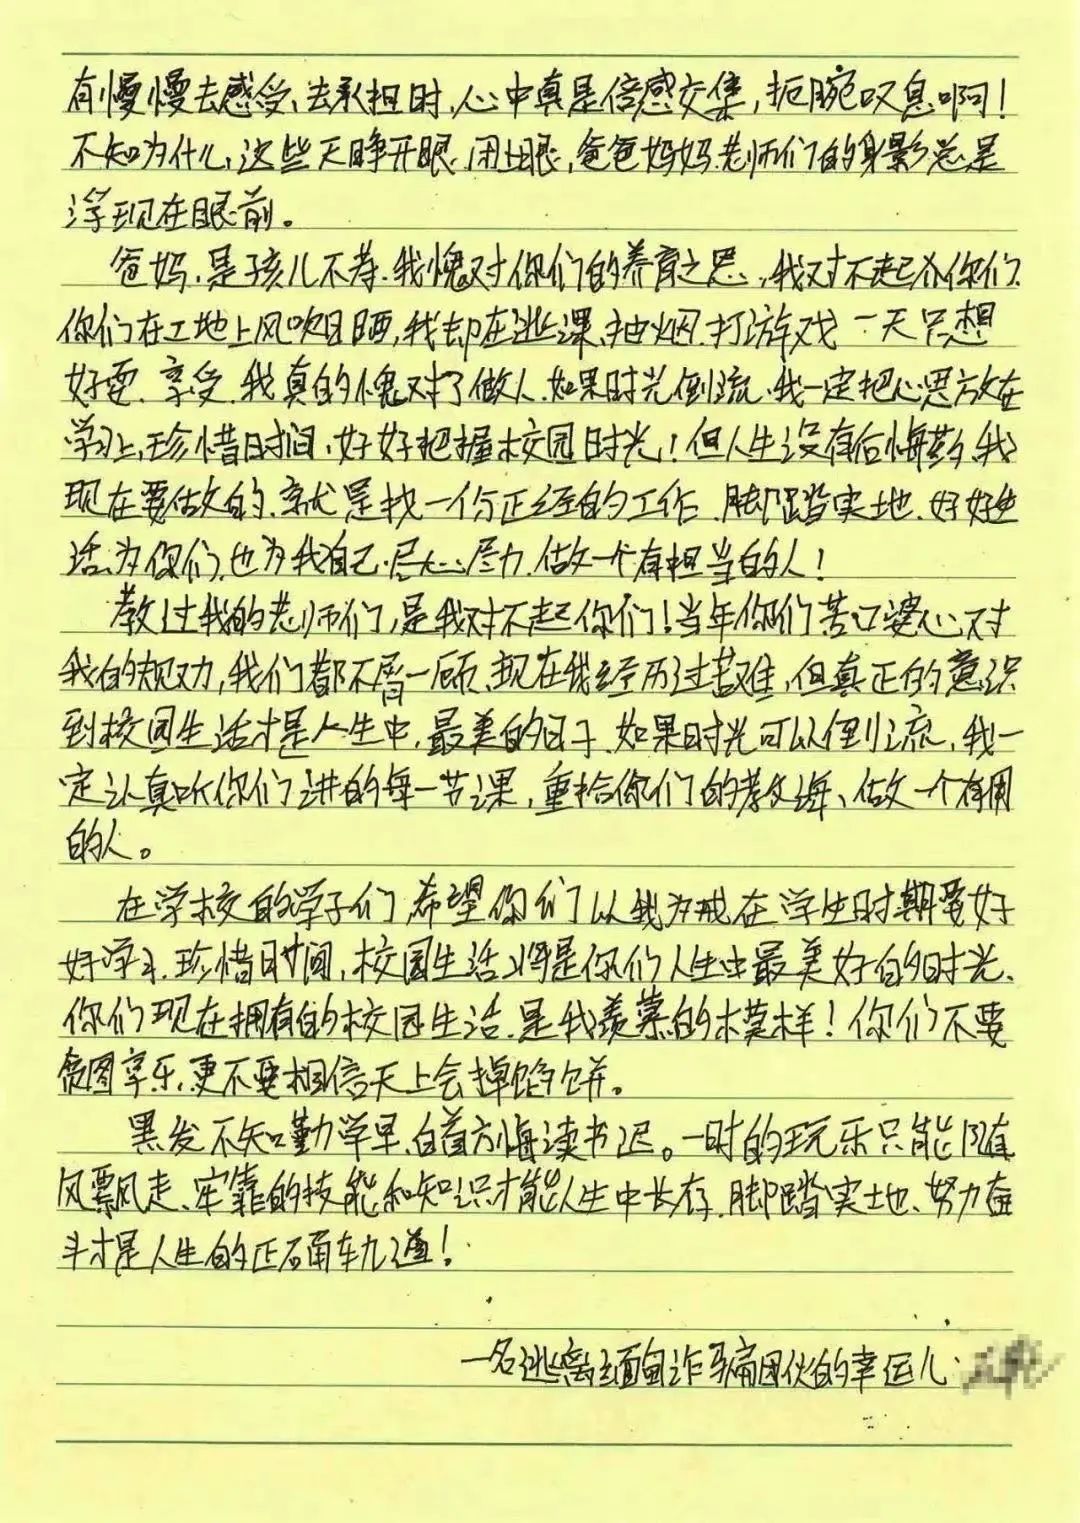 有慢慢去感受、去承担时,心中真是倍感交集,扼腕叹息啊!
不知为什么,这些天睁开眼、闭上眼,爸爸妈妈、老师们的身影总是
浮现在眼前。
爸妈,是孩儿不孝,我愧对你们的养育之恩,我对不起你们,
你们在工地上风吹日晒,我却在逃课、抽烟、打游戏 一天只想
好耍、享受,我真的愧对了做人,如果时光倒流,我一定把心思放在
学习上,珍惜时间,好好把握校园时光!但人生没有后悔药,我
现在要做的,就是找一份正经的工作,脚踏实地、好好生
活,为你们,也为我自己,尽心尽力,做一个有担当的人!
教过我的老师们,是我对不起你们!当年你们苦口婆心对
我的规劝,我们都不屑一顾,现在我经历过苦难,但真正的意识
到校园生活才是人生中,最美的日子,如果时光可以倒流,我一
定认真听你们讲的每一节课,重拾你们的教诲、做一个有用
的人。
在学校的学子们,希望你们以我为戒在学生时期要好
好学习,珍惜时间,校园生活将是你们人生中最美好的时光,
你们现在拥有的校园生活,是我羡慕的模样!你们不要
贪图享乐,更不要相信天上会掉馅饼。
黑发不知勤学早,白首方悔读书迟。一时的玩乐只能随
风飘走、牢靠的技能和知识才能人生中长存,脚踏实地、努力奋
斗才是人生的正确轨道!
一名逃离缅甸诈骗团伙的幸运儿: